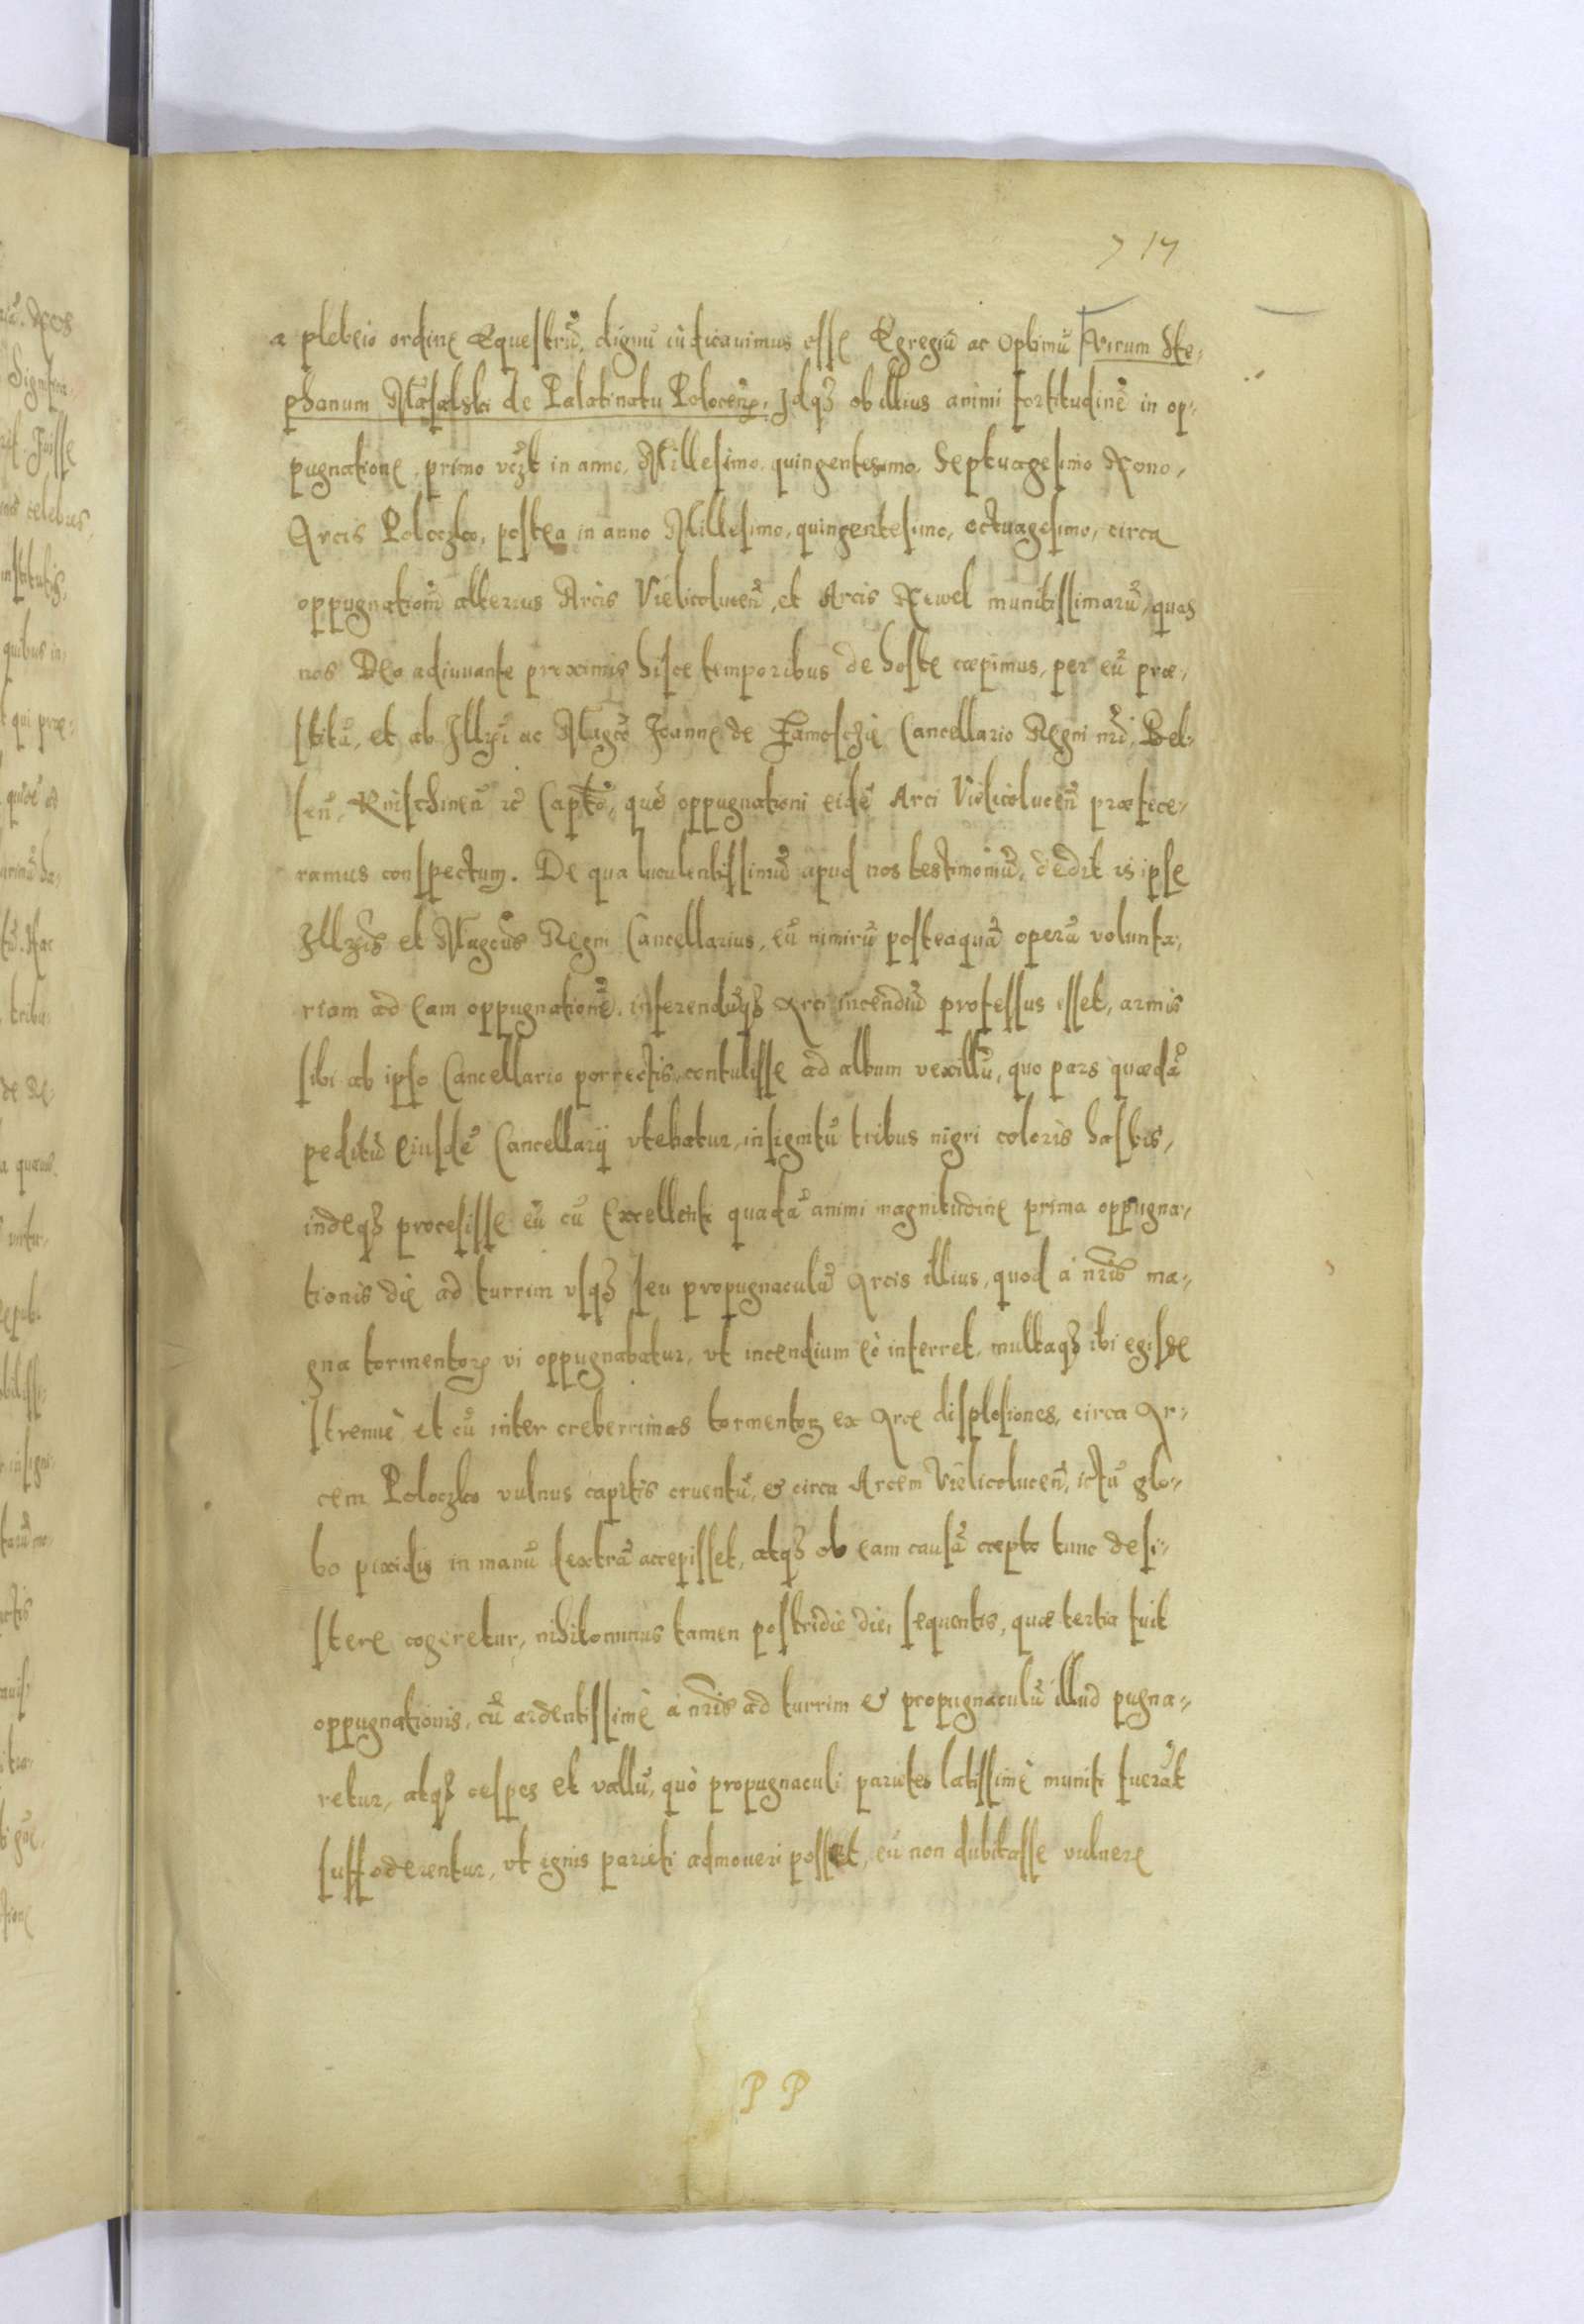 717
a plebeio ordine Equestrũ, dignũ iudicauimus esse Egregiũ ac Optimũ Virum Ste,
phanum Masalski de Palatinatu Polocen, Idqȝ ob illius animi fortitudinẽ in op,
pugnatione, primo vczt in anno, Millesimo, quingentesimo, Septuagesimo Nono,
Arcis Poloczko, postea in anno Millesimo, quingentesimo, octuagesimo, circa
oppugnationẽ alterius Arcis Vielicolucen̄, et Arcis Newel munitissimarũ, quas
nos Deo adiuuante proximis hisce temporibus de hoste cœpimus, per eũ præ,
stitũ, et ab Illri ac Magco Joanne de Zamoschie Cancellario Regni nrĩ, Bel,
sen̄, Knischinen̄ ꝛc Capto, quẽ oppugnationi eidẽ Arci Vielicolucen̄ præfece,
ramus conspectum. De qua luculentissimũ apud nos testimoniũ, dedit is ipse
Illris et Magcus Regni Cancellarius, eũ nimirũ posteaquã operã volunta,
riam ad eam oppugnationẽ, inferendũqȝ Arci incendiũ professus esset, armis
sibi ab ipso Cancellario porrectis, contulisse ad album vexillũ, quo pars quædã
peditũ eiusdẽ Cancellarij vtebatur, insignitũ tribus nigri coloris hastis,
indeqȝ processisse eũ cũ excellenti quadã animi magnitudine prima oppugna,
tionis die ad turrim vsqȝ seu propugnaculũ Arcis illius, quod à nris ma,
gna tormentoꝝ vi oppugnabatur, vt incendium eò inferret, multaqȝ ibi egisse
strenuè et cũ inter creberrimas tormentoꝝ ex Arce displosiones, circa Ar,
cem Poloczko vulnus capitis cruentũ, & circa Arcem Vielicolucen̄, ictũ glo,
bo pixidis in manũ dextrã accepisset, atqȝ ob eam causã cœpto tunc desi,
stere cogeretur, nihilominus tamen postridie diei sequentis, quæ tertia fuit
oppugnationis, cũ ardentissimè à nris ad turrim & propugnaculũ illud pugna,
retur, atqȝ cespes et vallũ, quò propugnaculi parietes latissimè muniti fuerãt
suffoderentur, vt ignis parieti admoueri posset, eũ non dubitasse vulnere
PP